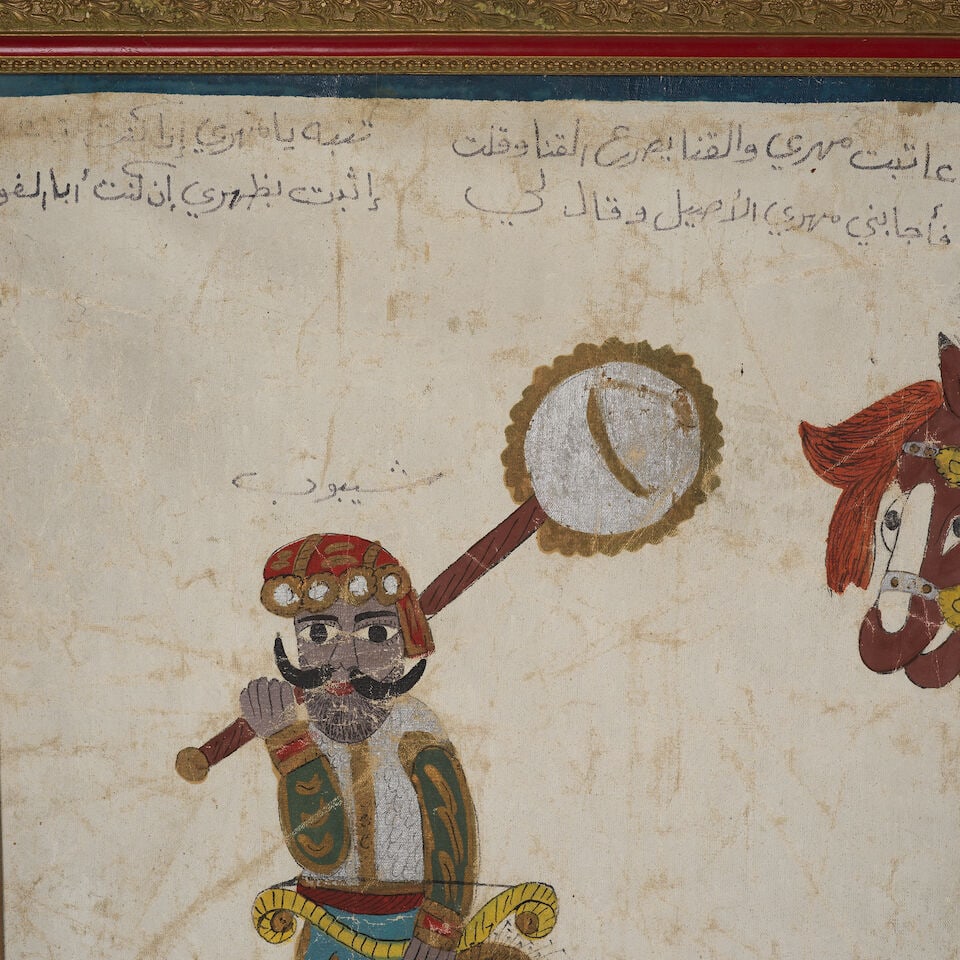 عاتبت مهري والقنا يصرع القنا وقلت تنبه يا مهري إن كنت
فأجابني مهري الأصيل وقال لي إثبت بظهري إن كنت أبا الفو
شيبوب